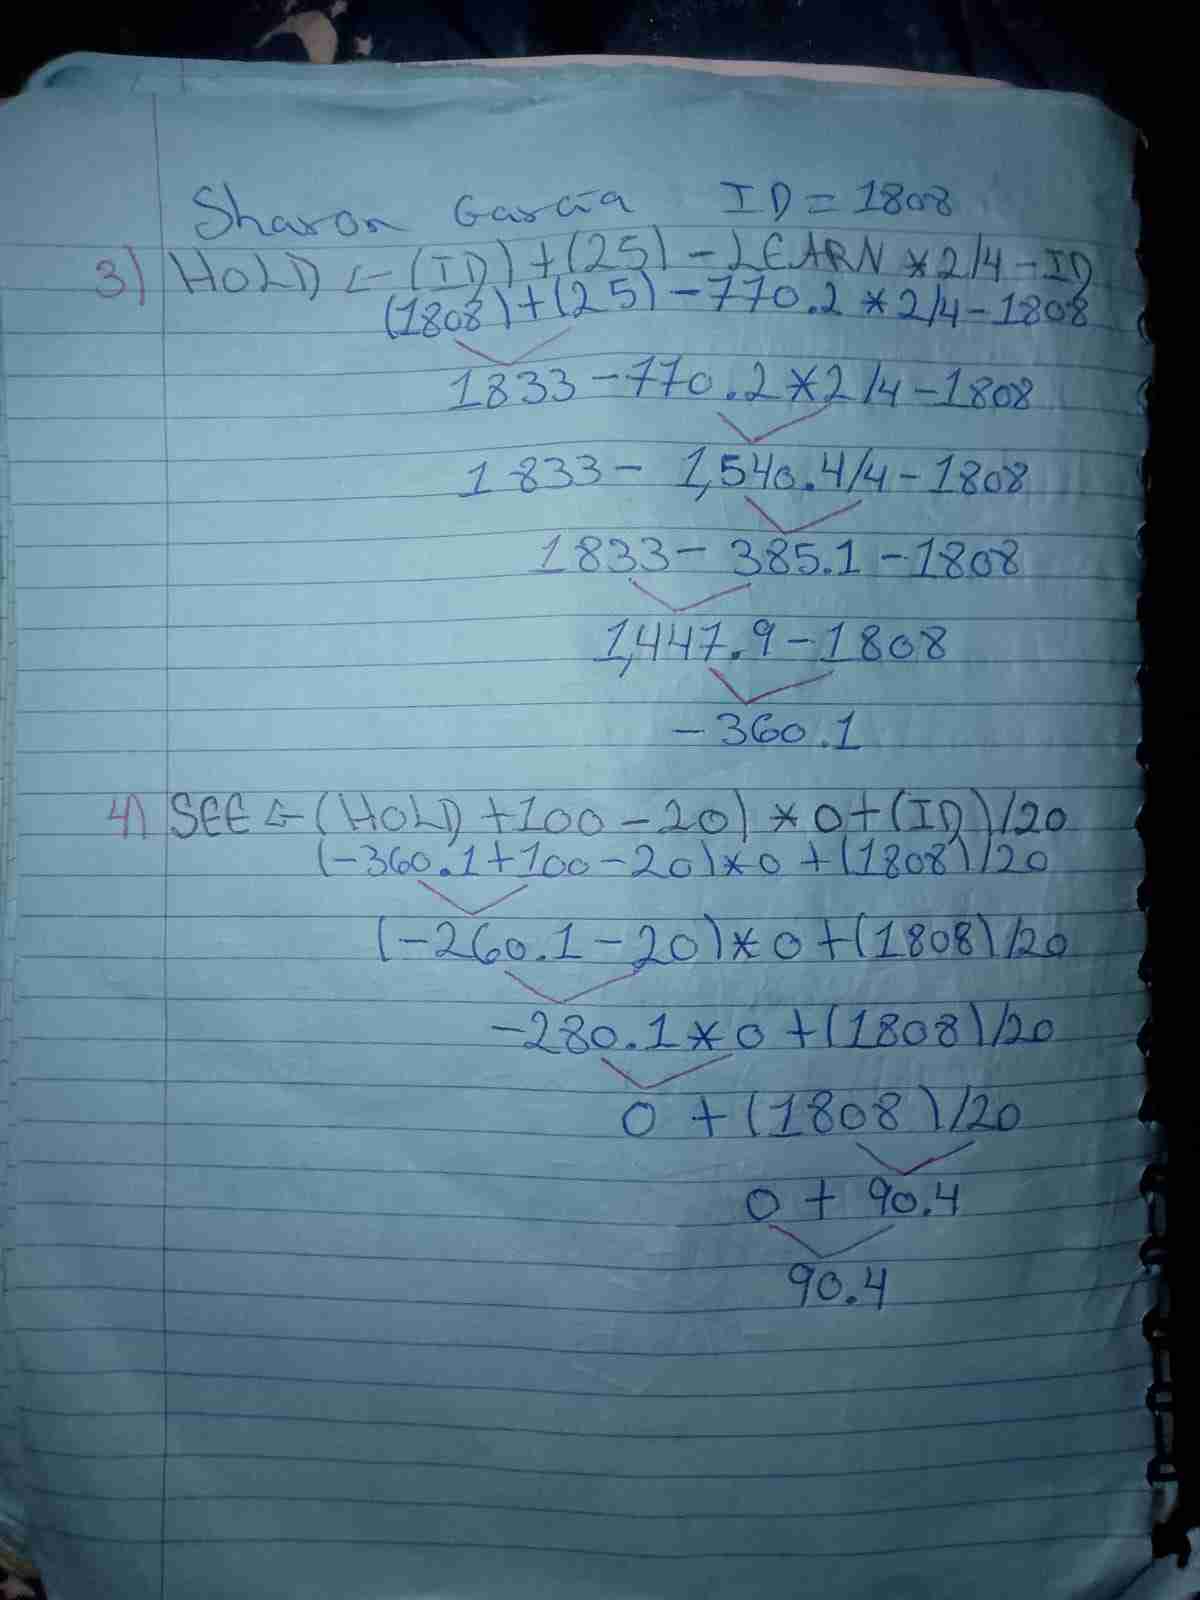 Sharon Garcia ID = 1808
3) HOLD ← (ID) + (25) - LEARN * 2/4 - ID
(1808) + (25) - 770.2 * 2/4 - 1808
1833 - 770.2 * 2/4 - 1808
1833 - 1,540.4/4 - 1808
1833 - 385.1 - 1808
1,447.9 - 1808
- 360.1
4) SEE ← (HOLD + 100 - 20) * 0 + (ID) / 20
(-360.1 + 100 - 20) * 0 + (1808) / 20
(-260.1 - 20) * 0 + (1808) / 20
-280.1 * 0 + (1808) / 20
0 + (1808) / 20
0 + 90.4
90.4